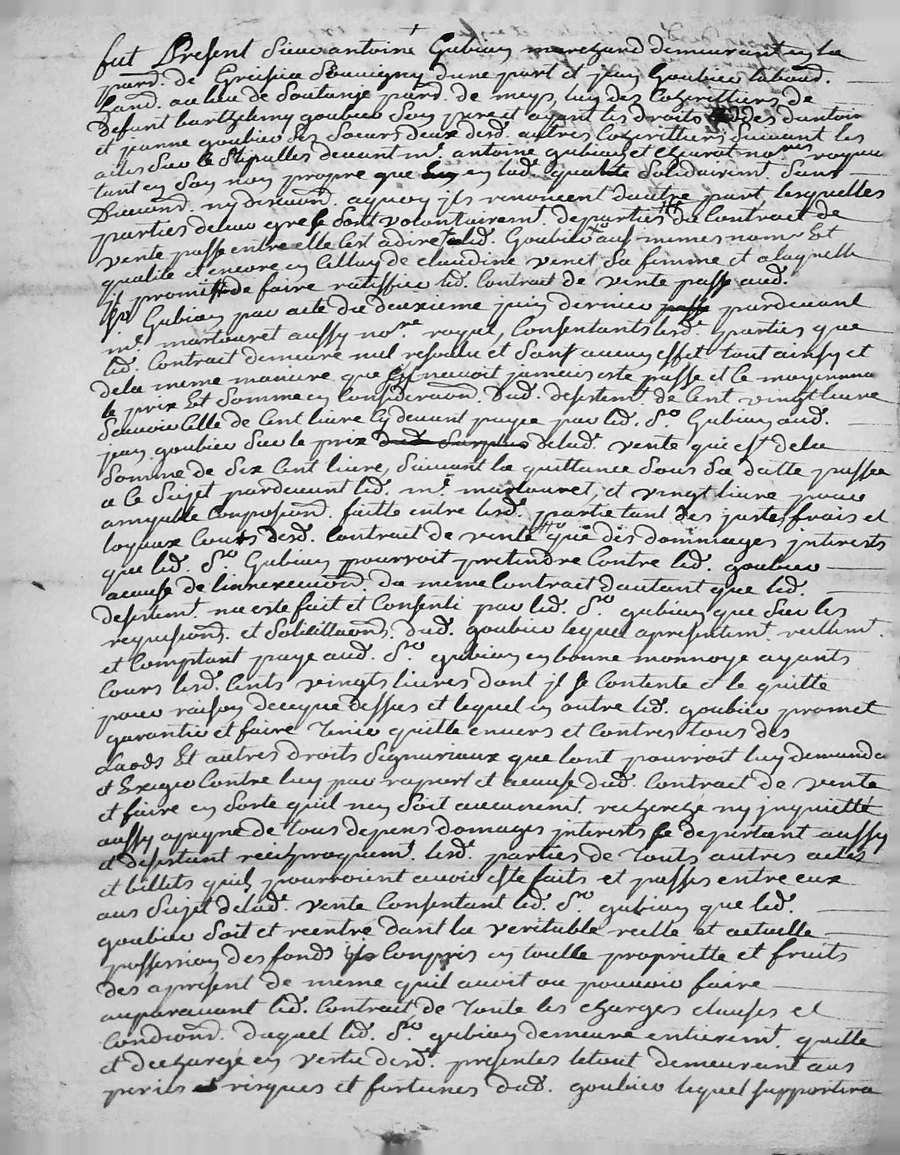 fut Present Sieur antoine Gubian marchand demeurant en la
parr. de Grezieu Souvigny d'une part et jean Goubier labour.
demt. au lieu de Soutange parr. de meys, luy des Coheritiers de
deffunt barthelemy goubier Son pere et ayant les droits des d'antoine
et jeanne goubier Ses Soeurs deux desd. autres Coheritiers Suivant les
actes Sur ce Stipullés devant me. antoine gubian et Charat nores royaux
tant en Son nom propre que en lad. qualité Solidairemt. Sans
Division. ny discution. aquoy ils renoncent d'autre part, lesquelles
parties de leur gré Se Sont volontairemt. departies du Contrat de
vente passé entre elle C'est a dire led. Goubier aus memes noms Et
qualité et encore en Celluy de claudine venet Sa femme et a laquelle
il promit de faire ratiffier led. Contrat de vente passé aud.
Sr. Gubian par acte du deuxieme juin dernier pardevant
me. martouret aussy nore. royal, Consentants lesd. parties que
led. Contrait demeure nul resolu et Sans aucun effet tout ainsy et
de la meme maniere que s'il n'avoit jamais esté passé et ce moyennant
le prix Et Somme en Consideraon. Dud. desistemt. de Cent vingt livre
Scavoir Celle de Cent livre Cy devant payée par led. Sr. Gubian aud.
jean goubier Sur le prix de lad. vente qui est de la
Somme de Six Cent livre, Suivant la quittance Sous Sa datte passée
a ce Sujet pardevant led. me. martouret, et vingt livre pour
amyable Composion. faitte entre lesd. partie tant des justes frais et
loyaux Couts desd. Contrait de vente que des dommages interests
que led. Sr. Gubian pourroit pretendre Contre led. goubier
acause de l'innexecution. du meme Contrat d'autant que led.
desistemt. n'a esté fait et Consenti par led. Sr. gubian que Sur les
requisions. et Solicittaons. dud. goubier lequel apresentemt. reellemt.
et Comptant payé aud. Sr. gubian en bonne monnoye ayants
Cours lesd. Cents vingts livres dont il Se Contente et le quitte
pour raison de ce que dessus et lequel en outre led. goubier promet
garantir et faire Tenir quitte envers et Contres tous des
Laods Et autres droits Signuriaux que l'ont pourroit luy demander
et Exiger Contre luy par raport et acause dud. Contrait de vente
et faire en Sorte qu'il n'en Soit aucunemt. recherché ny inquietté
aussy apeyne de tous depens domages interests Se departant aussy
et desistant reciproquemt. lesd. parties de Touts autres actes
et billets quils pourroient avoir esté faits et passés entre eux
aus Sujet de lad. vente Consentant led. Sr. gubian que led.
goubier Soit et reentre dant la veritable reelle et actuelle
possession des fonds Conpris en touttes propriette et fruits
des apresent de meme qu'il avoit ou pouvoir faire
auparavant led. Contrait, de Toute les Charges clauses et
Condions. duquel led. Sr. gubian demeure entieremt. quitte
et decharge en vertu desd. presentes le tout demeurant aus
perils risques et fortunes dud. goubier lequel supportera